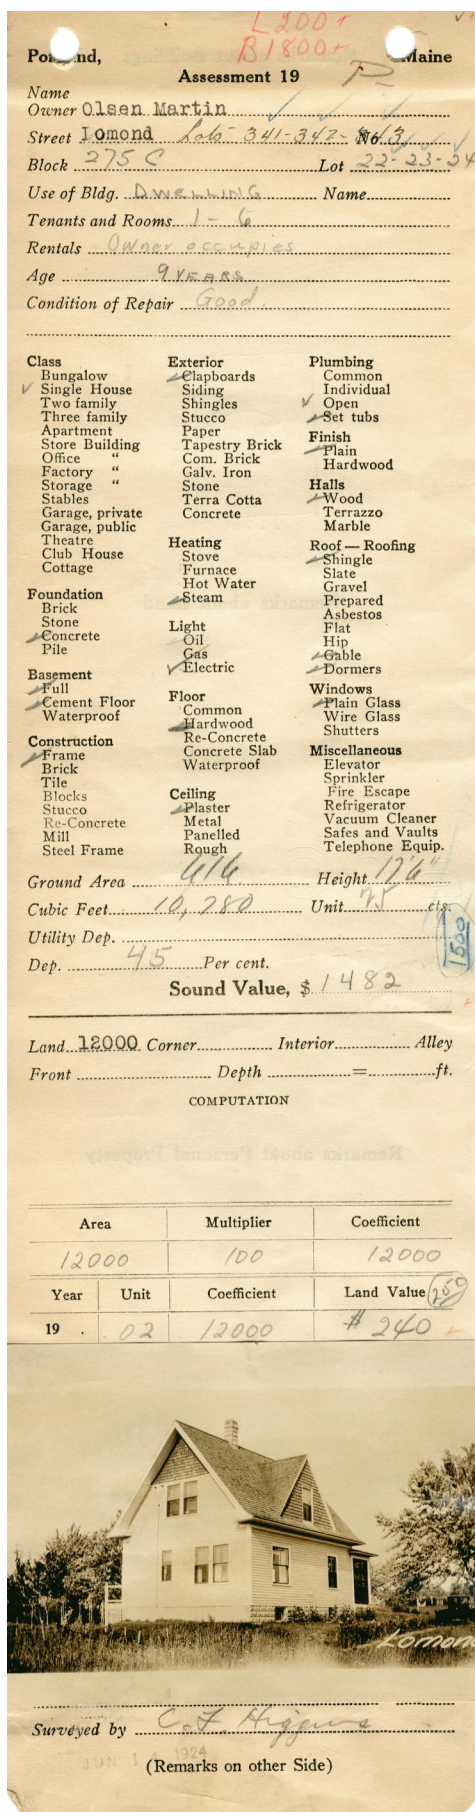 L200+
B1800+
Portland, Maine
Assessment 19
Name
Owner Olsen Martin
Street Lomond Lots 341-342-343 No.
Block 275 C Lot 22-23-24
Use of Bldg. DWELLING Name
Tenants and Rooms 1-6
Rentals Owner occupies
Age 9 YEARS
Condition of Repair Good.
Class
Bungalow
Single House
Two family
Three family
Apartment
Store Building
Office "
Factory "
Storage "
Stables
Garage, private
Garage, public
Theatre
Club House
Cottage
Foundation
Brick
Stone
Concrete
Pile
Basement
Full
Cement Floor
Waterproof
Construction
Frame
Brick
Tile
Blocks
Stucco
Re-Concrete
Mill
Steel Frame
Exterior
Clapboards
Siding
Shingles
Stucco
Paper
Tapestry Brick
Com. Brick
Galv. Iron
Stone
Terra Cotta
Concrete
Heating
Stove
Furnace
Hot Water
Steam
Light
Oil
Gas
Electric
Floor
Common
Hardwood
Re-Concrete
Concrete Slab
Waterproof
Ceiling
Plaster
Metal
Panelled
Rough
Plumbing
Common
Individual
Open
Set tubs
Finish
Plain
Hardwood
Halls
Wood
Terrazzo
Marble
Roof — Roofing
Shingle
Slate
Gravel
Prepared
Asbestos
Flat
Hip
Gable
Dormers
Windows
Plain Glass
Wire Glass
Shutters
Miscellaneous
Elevator
Sprinkler
Fire Escape
Refrigerator
Vacuum Cleaner
Safes and Vaults
Telephone Equip.
Ground Area 616 Height 17'6"
Cubic Feet 10,780 Unit 25 cts.
Utility Dep.
1500
Dep. 45 Per cent.
Sound Value, $ 1482
Land 12000 Corner Interior Alley
Front Depth = ft.
COMPUTATION
Area Multiplier Coefficient
12000 100 12000
Year Unit Coefficient Land Value 250
19 . 02 12000 # 240
Lomond
Surveyed by C. F. Higgins
JUN 1 1924
(Remarks on other Side)